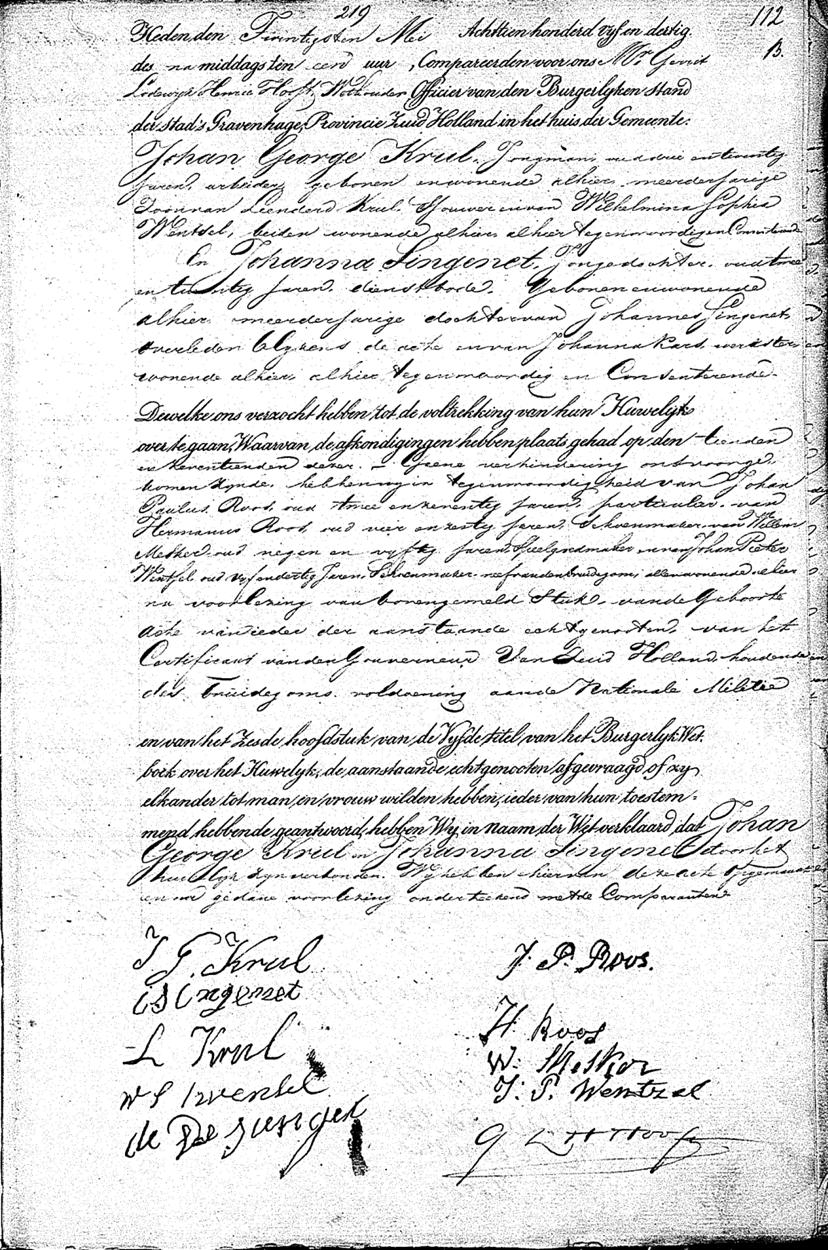 219
112
B.
Heden den Twintigsten Mei Achttien honderd vyf en dertig.
des namiddags ten een uur, Compareerden voor ons Mr. Gerrit
Lodewyk Henrie Hooft, Wethouder Officier van den Burgerlyken stand
der stad 's Gravenhage, Provincie Zuid Holland in het huis der Gemeente.
Johan George Krul. Jongman, oud drie en twintig
Jaren, arbeider, geboren en wonende alhier, meerderjarige
Zoon van Leendert Krul. Schouwer en van Wilhelmina Sophia
Wentsel, beiden wonende alhier, alhier tegenwoordig en Consenteerende
En Johanna Singenet, Jongedochter. oud twee
en twintig Jaren. dienstbode. Geboren en wonende
alhier. meerderjarige dochter van Johannes Singenet
overleden blykens de acte en van Johanna Kars, werkster
wonende alhier, alhier tegenwoordig en Consenterende.
Dewelke ons verzocht hebben tot de voltrekking van hun Huwelyk
over te gaan, Waarvan de afkondigingen hebben plaats gehad op den tienden
en zeventienden dezer. – Geene verhindering ontvoorge
komen zynde, hebben wy in tegenwoordigheid van Johan
Paulus Roos, oud twee en zeventig Jaren, particulier. van
Hermanus Roos, oud vier en zestig Jaren, Schoenmaker. van Willem
Mesker oud negen en vyftig Jaren en van Johan Pieter
Wentsel oud vyf en dertig Jaren, Schoenmaker. neef van den bruidegom, allen wonende alhier
na voorlezing van bovengemeld Stuk. van de Geboorte
acte van ieder der aanstaande echtgenooten. van het
Certificaat van den Gouverneur Van Zuid Holland. houdende
des bruidegoms. voldoening aan de Nationale Militie
en van het Zesde hoofdstuk van de Vyfde titel van het Burgerlyk Wet.
boek over het Huwelyk, de aanstaande echtgenooten afgevraagd of zy
elkander tot man en vrouw wilden hebben, ieder van hun toestem-
mend hebbende geantwoord, hebben Wy, in naam der Wet verklaard, dat Johan
George Krul en Johanna Singenet door het
huwelyk zyn verbonden. Wy hebben hiervan deze acte opgemaakt
en na gedane voorlezing onderteekend met de Comparanten
J G. Krul
J. P. Roos.
L Krul
H Roos
W. Mesker
W S Wensel
J. P. Wentzel
G L H Hooft